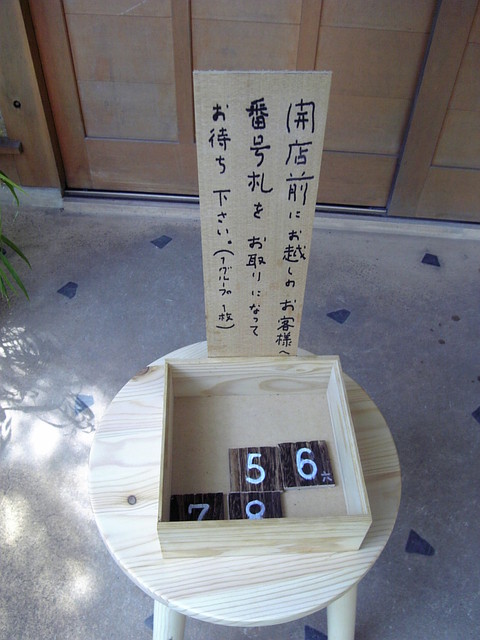 開店前にお越しの お客様へ
番号札を お取りになって
お待ち 下さい。(1グループ 1枚)
5
6六
7
8